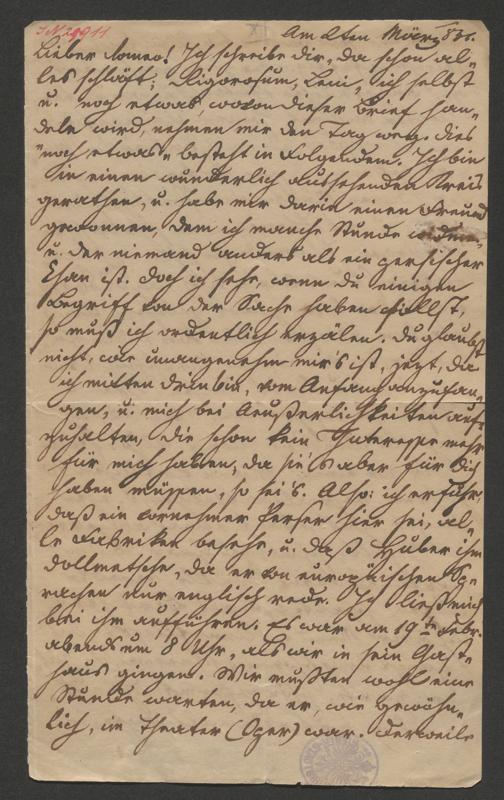 I N 29911
Am 2ten März 835.
Lieber Romeo! Ich schreibe dir, da schon al-
les schläft; Rigorosum, Leni, ich selbst
u. noch etwas, wovon dieser Brief han-
deln wird, nehmen mir den Tag weg. Dies
"noch etwas" besteht in Folgendem. Ich bin
in einen wunderlich aussehenden Kreis
gerathen, u. habe mir darin einen Freund
gewonnen, dem ich manche Stunde widme,
u. der niemand anders als ein persischer
Chan ist. Doch ich sehe, wenn du einigen
Begriff von der Sache haben sollst,
so muß ich ordentlich erzälen. Du glaubst
nicht, wie unangenehm mir's ist, jezt, da
ich mitten drin bin, vom Anfang anzufan-
gen, u. mich bei Aeußerlichkeiten auf-
zuhalten, die schon kein Interesse mehr
für mich haben; da sie's aber für dich
haben müssen, so sei's. Also: ich erfuhr,
daß ein vornehmer Perser hier sei, al-
le Fabriken besehe, u. daß Huber ihm
dollmetsche, da er von europäischen Sp-
rachen nur englisch rede. Ich ließ mich
bei ihm aufführen. Es war am 19ten Febr.
abends um 8 Uhr, als wir in sein Gast-
haus gingen. Wir mußten wohl eine
Stunde warten, da er, wie gewöhn-
lich, im Theater (Oper) war. Derweile